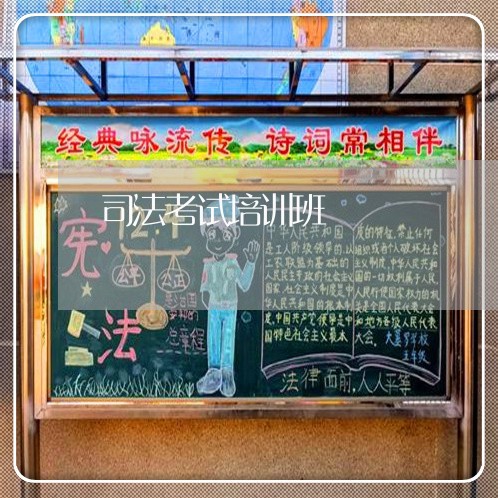 经典咏流传 诗词常相伴
司法考试培训班
宪
法
公平
公正
总章程
中华人民共和国
是工人阶级领导的,以
工农联盟为基础的
人民民主专政的社会主义
国家.社会主义制度是中
华人民共和国的根本制
度.中国共产党领导是中
国特色社会主义最本
质的特征.禁止任何
组织或者个人破坏社会
主义制度.中华人民共和
国的一切权利属于人民.
人民行使国家权力的机
关是全国人民代表大会
和地方各级人民代表
大会.
五年级
法律面前,人人平等